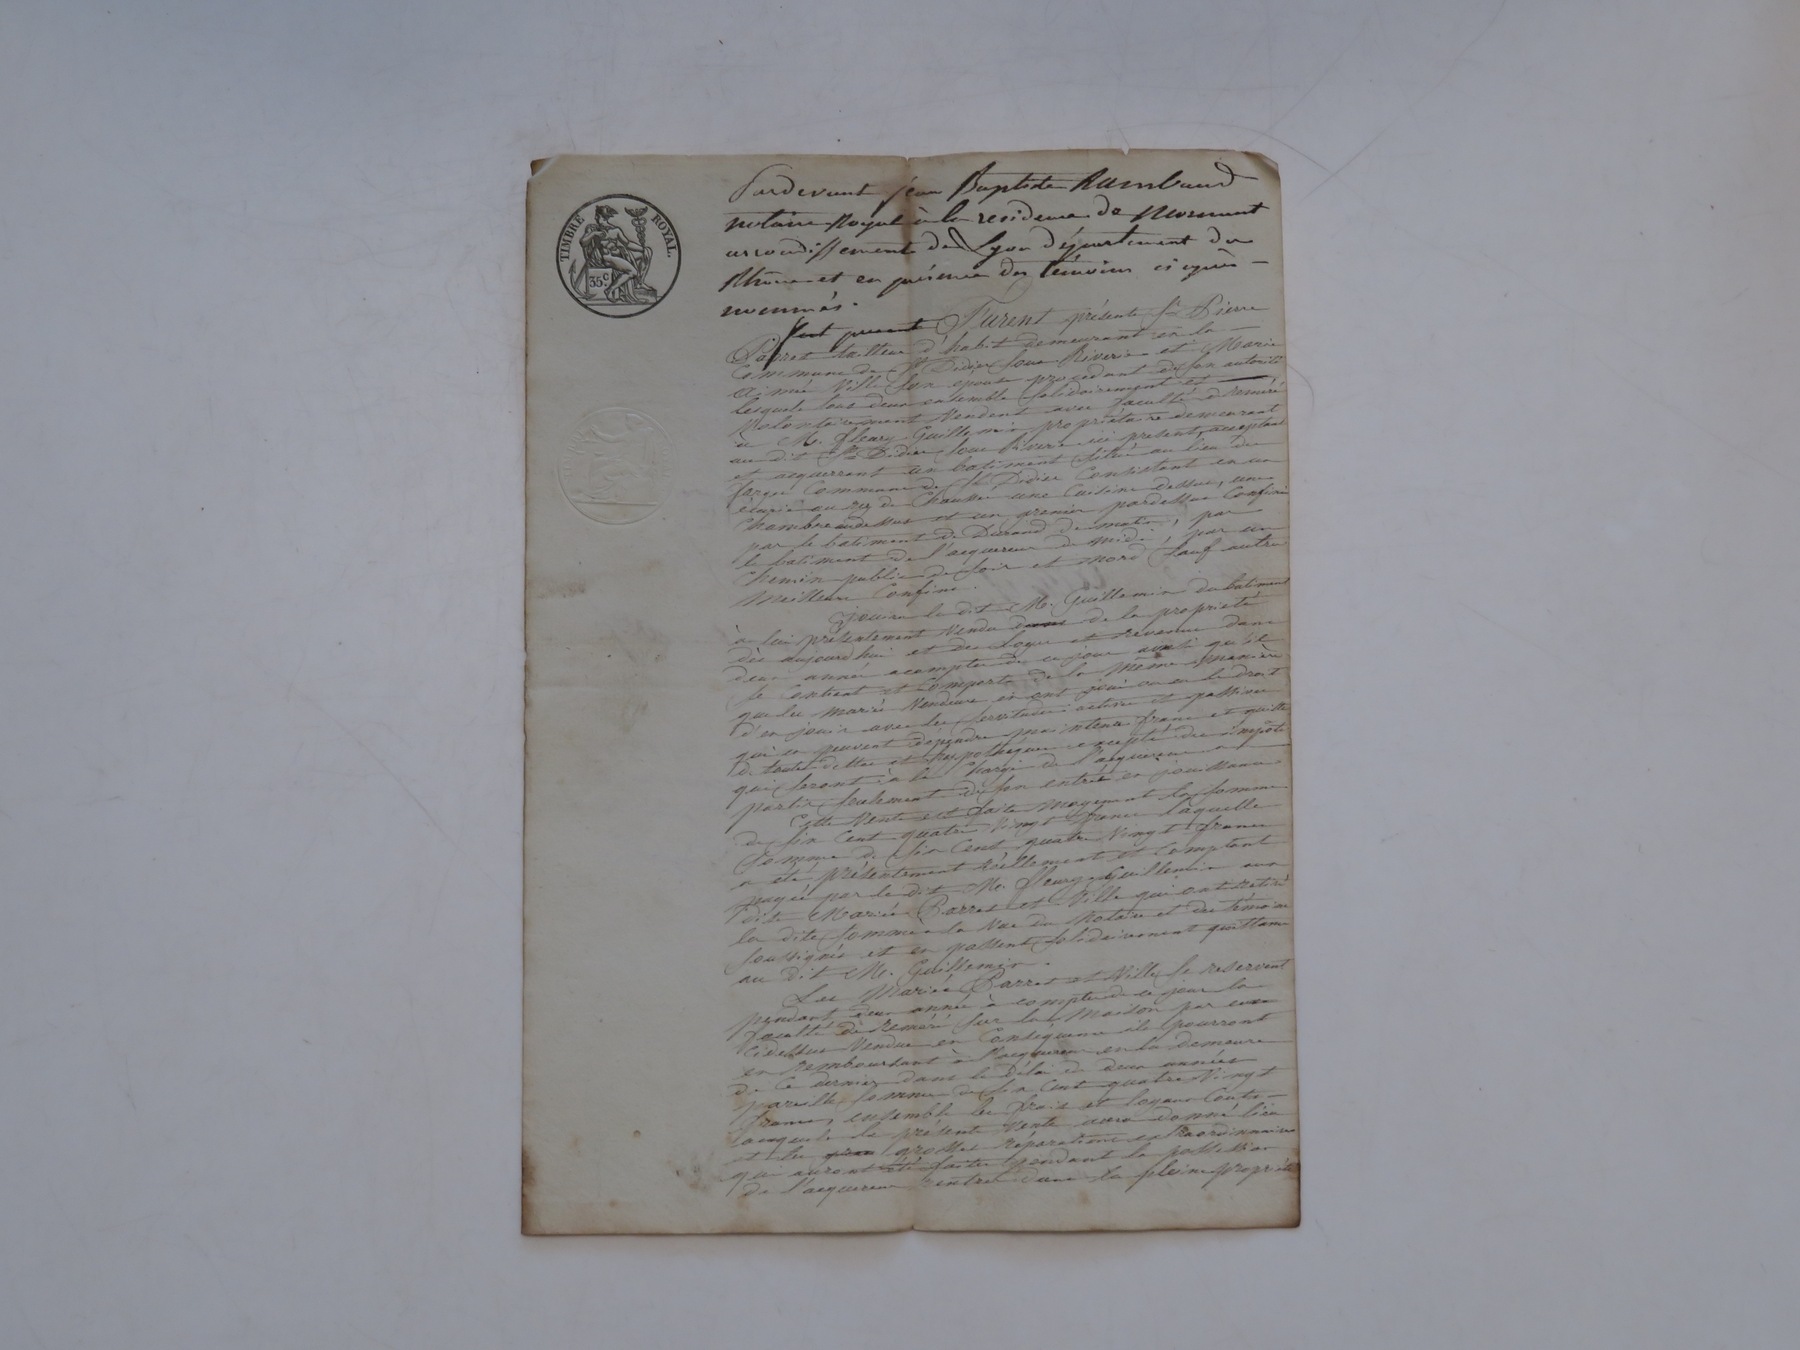 TIMBRE ROYAL
35 c.
Pardevant jean Baptiste Rambaud
notaire Royal à la residence de Mornant
arrondissement de Lyon département du
Rhône et en présence des témoins ci après
nommés.
Furent présents Sr. Pierre
Parret tailleur d'habit demeurant en la
Commune de St Didier sous Riverie et Marie
Aimée Ville son épouse procedant de son autorité
lesquels tous deux ensemble solidairement et
volontairement vendent avec faculté de réméré
à M. fleury Guillemin propriétaire demeurant
au dit St Didier sous Riverie ici present, acceptant
et acquerrant un batiment situé au lieu de
Commune de St Didier Consistant en un
écurie au rez de Chaussée une Cuisine dessus, une
Chambre au dessus et un grenier pardessus Confiné
par le batiment de Durand de matin, par
le batiment de l'acquereur de midi, par un
Chemin public de soir et nord sauf autre
Meilleur Confins.
jouira le dit M. Guillemin du batiment
à lui présentement vendu de la propriété
dès aujourd'hui et des loyers et revenus dans
deux années a compter de ce jour ainsi qu'il
se Contient et Comporte de la même manière
que les mariés vendeurs en ont joui ou eu le droit
d'en jouir avec les servitudes actives et passives
qui en peuvent dépendre maintenu franc et quitte
de toutes dettes et hypothèques excepté des impôts
qui seront à la Charge de l'acquereur à
partir seulement de son entrée en jouissance
Cette vente est faite moyennant la somme
de six Cent quatre vingt francs laquelle
somme de six Cent quatre vingt francs
a été présentement réellement et Comptant
payée par le dit M. fleury Guillemin aux
dits Mariés Parret et Ville qui ont retiré
la dite somme à la vue du Notaire et des témoins
soussignés et en passent solidairement quittance
au dit M. Guillemin.
Les Mariés Parret et Ville se reservent
pendant deux années à compter de ce jour la
faculté de réméré sur la Maison par eux
Cidessus vendue en Conséquence ils pourront
en remboursant à l'acquereur en la demeure
de Ce dernier dans le délai de deux années
pareille somme de six Cent quatre vingt
francs, ensemble les frais et loyaux Couts
auxquels la présente vente aura donné lieu
et les grosses réparations extraordinaires
qui auront été faites pendant la possession
de l'acquereur rentrer dans la pleine propriété